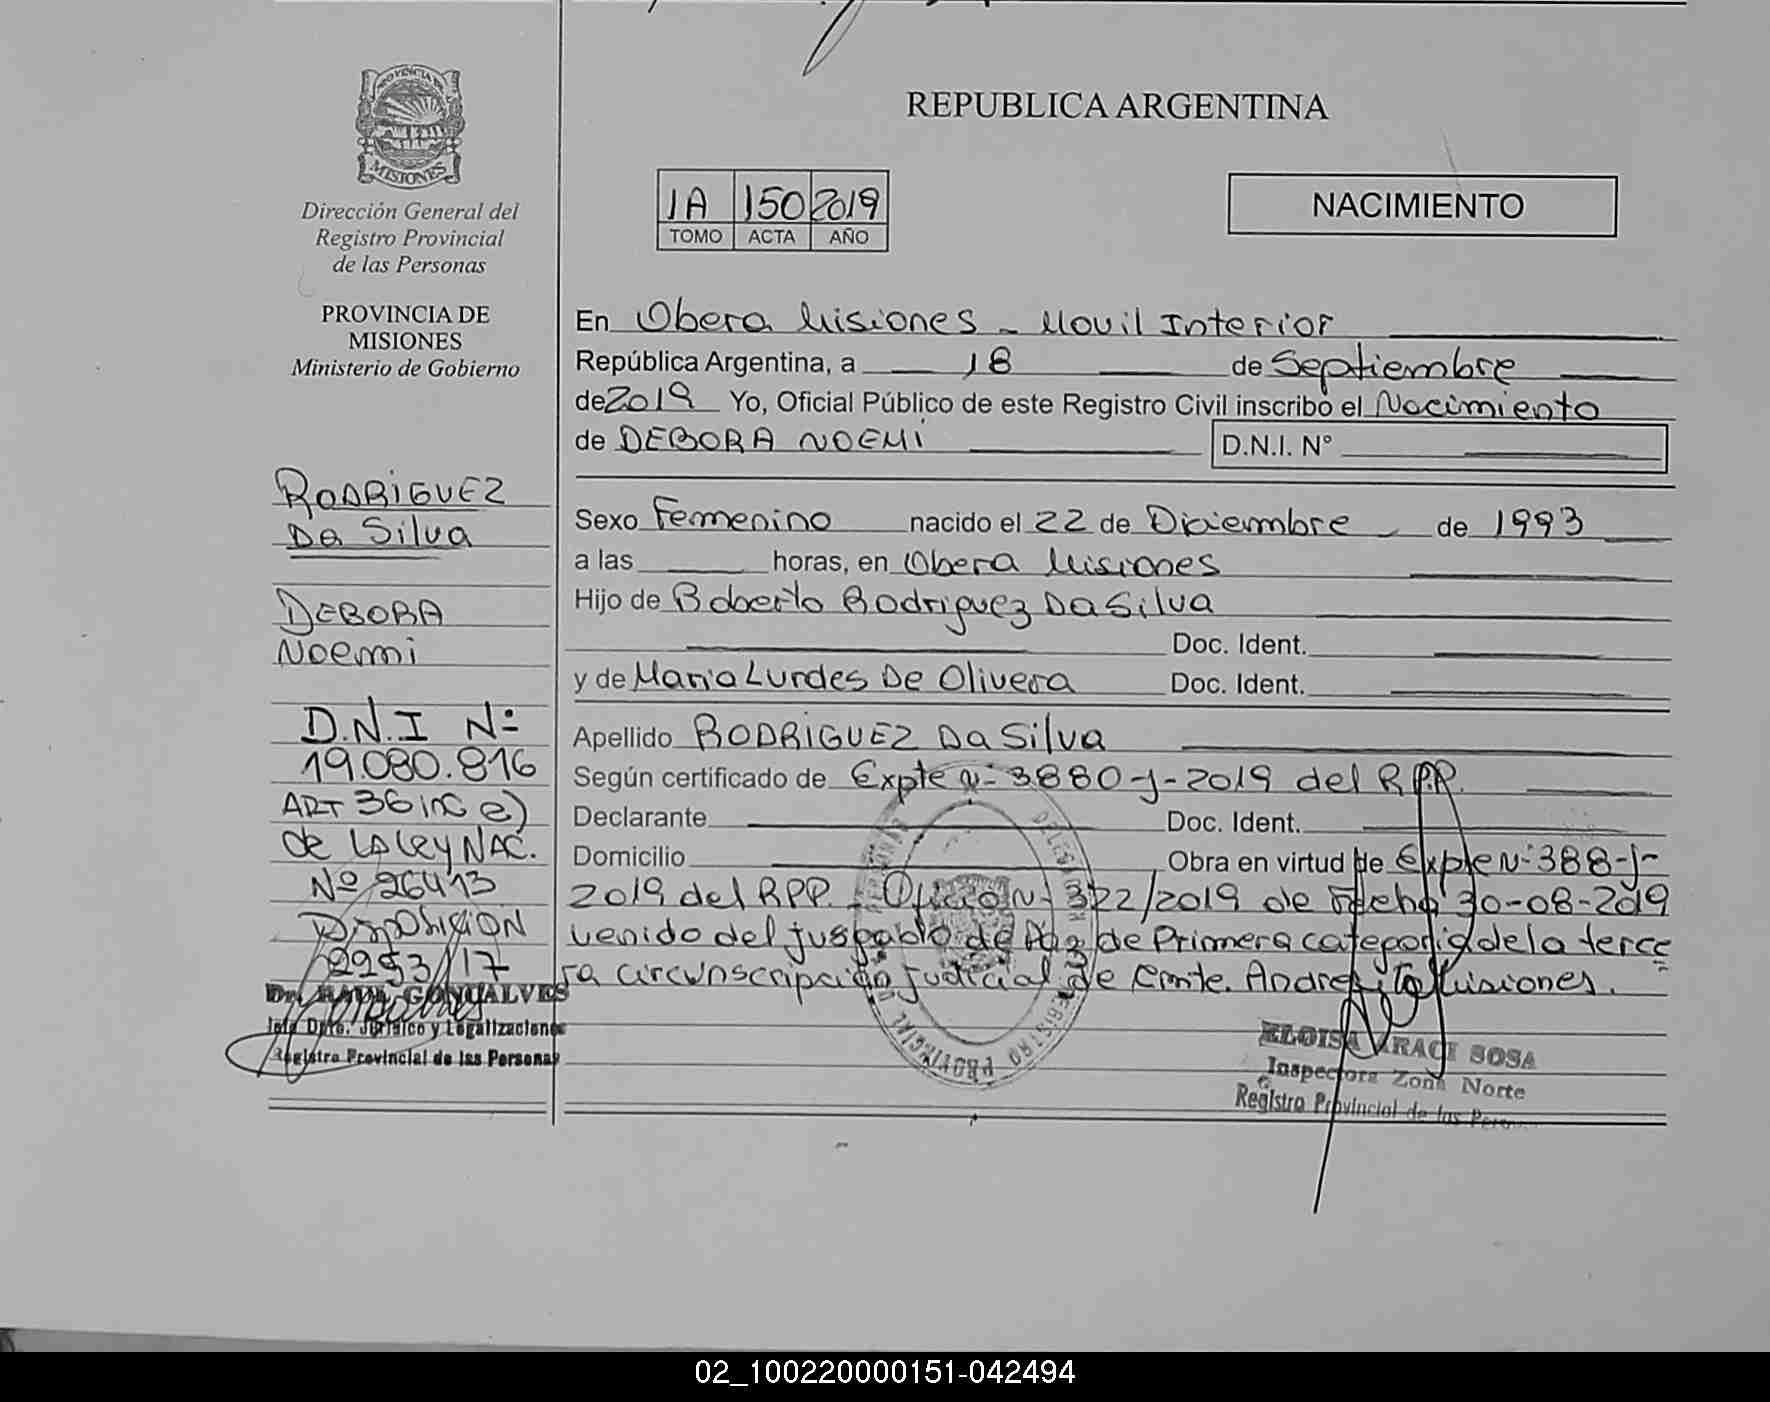 REPUBLICA ARGENTINA
PROVINCIA DE
MISIONES
Dirección General del
Registro Provincial
de las Personas
PROVINCIA DE
MISIONES
Ministerio de Gobierno
1A 150 2019
TOMO ACTA AÑO
NACIMIENTO
RODRIGUEZ
Da Silva
DEBORA
Noemi
D.N.I Nº
19.080.816
ART 36 inc e)
de LA Ley NAC.
Nº 26413
Disposición
2293/17
Dr. RAUL GONÇALVES
Jefe Dpto. Jurídico y Legalizaciones
Registro Provincial de las Personas
En Obera Misiones - Movil Interior
República Argentina, a 18 de Septiembre
de 2019 Yo, Oficial Público de este Registro Civil inscribo el Nacimiento
de DEBORA NOEMI D.N.I. N°
Sexo Femenino nacido el 22 de Diciembre de 1993
a las horas, en Obera Misiones
Hijo de Roberto Rodriguez Da Silva
Doc. Ident.
y de Maria Lurdes De Olivera Doc. Ident.
Apellido RODRIGUEZ Da Silva
Según certificado de Expte Nº 3880-J-2019 del R.P.P.
Declarante Doc. Ident.
Domicilio Obra en virtud de Expte Nº 388-J-
2019 del RPP. Oficio Nº 322/2019 de Fecha 30-08-2019
venido del juzgado de Paz de Primera categoria de la terce
ra circunscripción Judicial de Cmte. Andresito Misiones.
ELOISA ARACI SOSA
Inspectora Zona Norte
Registro Provincial de las
02_100220000151-042494